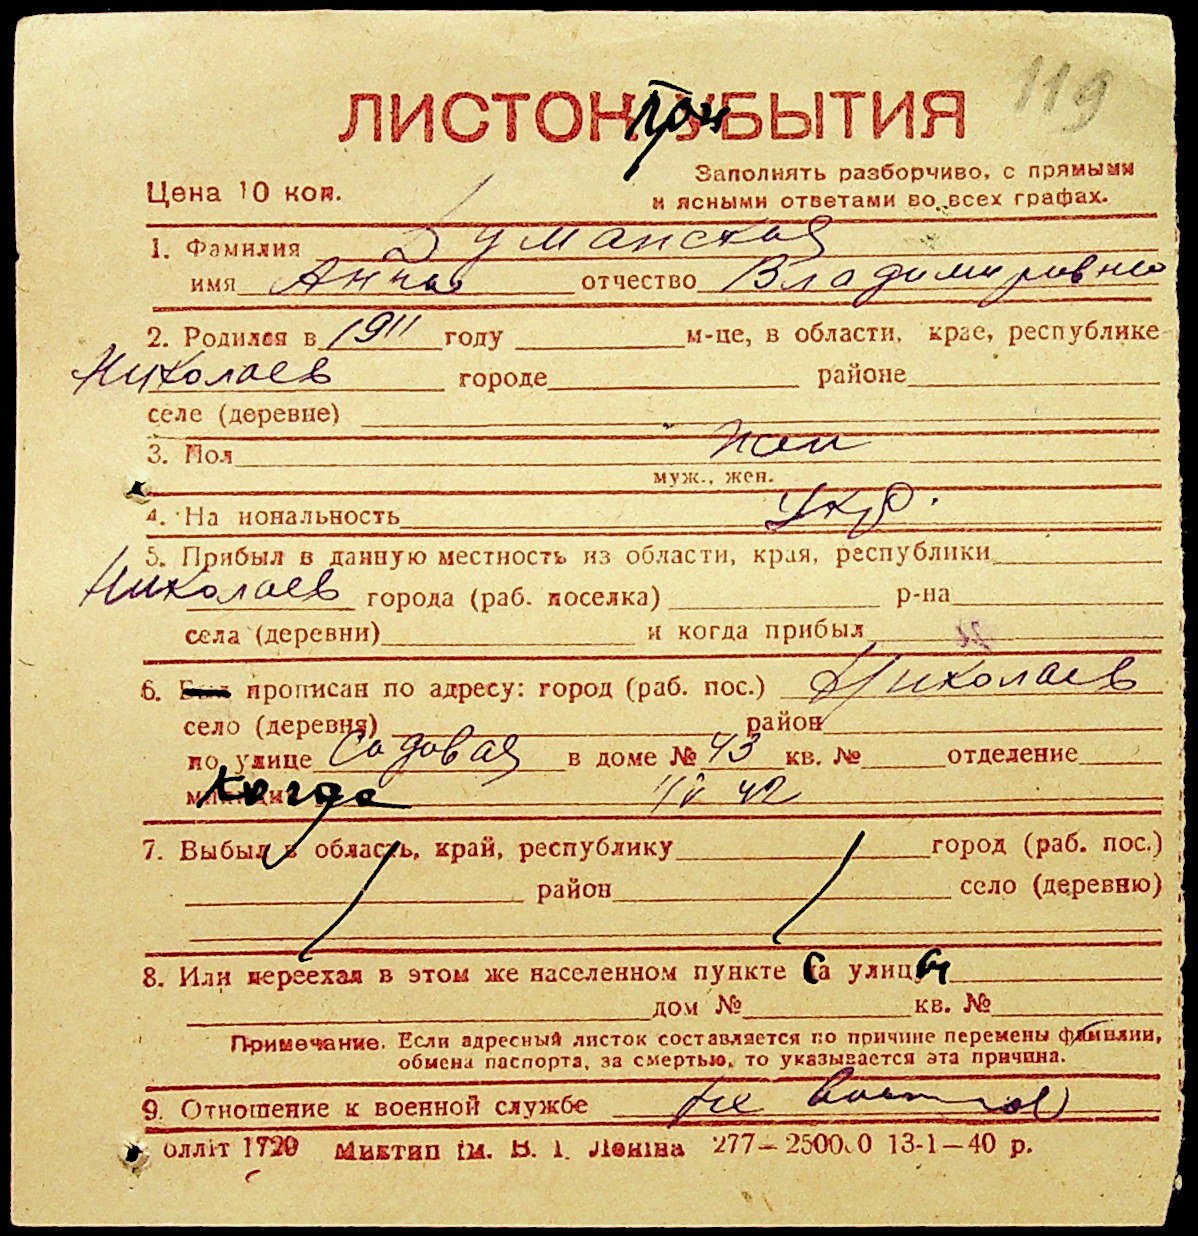 119
ЛИСТОК УБЫТИЯ
Цена 10 коп.
Заполнять разборчиво, с прямыми
и ясными ответами во всех графах.
1. Фамилия Думанская
имя Анна отчество Владимировна
2. Родился в 1911 году м-це, в области, крае, республике
Николаев городе районе
селе (деревне)
3. Пол жен
муж., жен.
4. На иональность Укр.
5. Прибыл в данную местность из области, края, республики
Николаев города (раб. поселка) р-на
села (деревни) и когда прибыл
6. Был прописан по адресу: город (раб. пос.) Николаев
село (деревня) район
по улице Садовая в доме № 43 кв. № отделение
когда 42
7. Выбыл в область, край, республику город (раб. пос.)
район село (деревню)
8. Или переехал в этом же населенном пункте са улицы
дом № кв. №
Примечание. Если адресный листок составляется по причине перемены фамилии,
обмена паспорта, за смертью, то указывается эта причина.
9. Отношение к военной службе не
оллит 1720 Миктип ім. В. І. Леніна 277–25000 13-1–40 р.